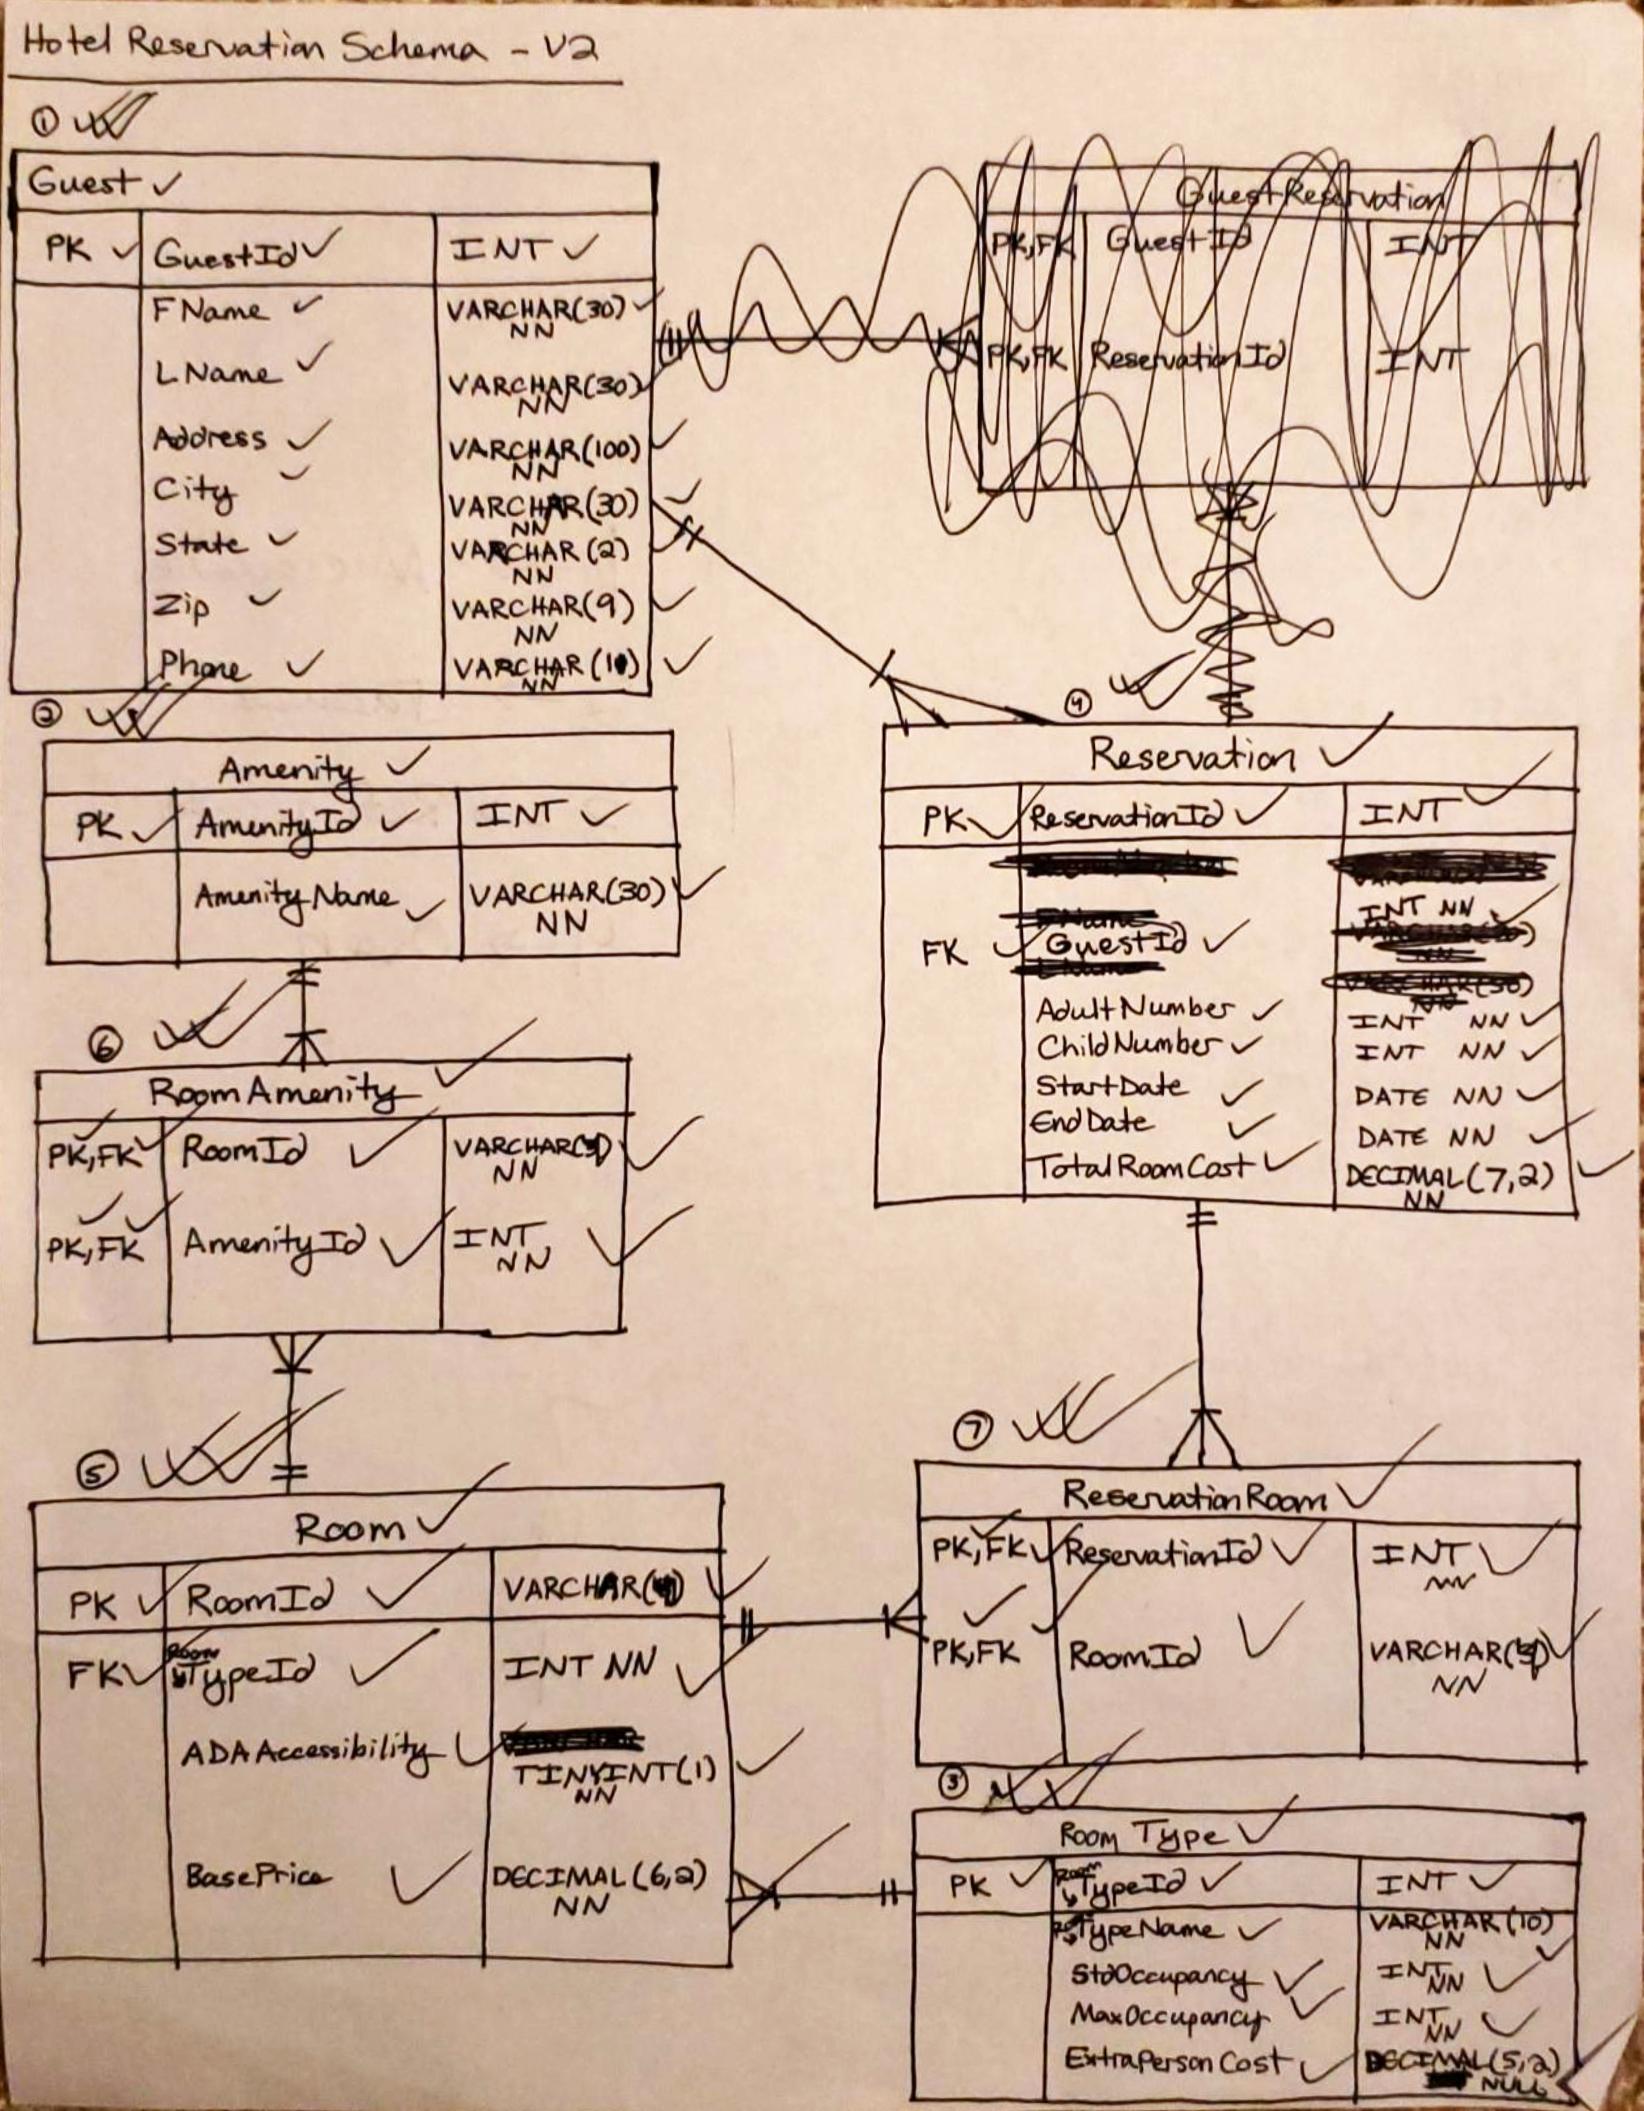 Hotel Reservation Schema - V2
①
Guest
PK GuestId INT
FName VARCHAR(30) NN
LName VARCHAR(30) NN
Address VARCHAR(100) NN
City VARCHAR(30) NN
State VARCHAR(2) NN
Zip VARCHAR(9) NN
Phone VARCHAR(10) NN
GuestReservation
PK,FK GuestId INT
PK,FK ReservationId INT
②
Amenity
PK AmenityId INT
AmenityName VARCHAR(30) NN
④
Reservation
PK ReservationId INT
FName
FK GuestId INT NN
LName
AdultNumber INT NN
ChildNumber INT NN
StartDate DATE NN
EndDate DATE NN
TotalRoomCost DECIMAL(7,2) NN
⑥
RoomAmenity
PK,FK RoomId VARCHAR( ) NN
PK,FK AmenityId INT NN
⑤
Room
PK RoomId VARCHAR( )
FK Room TypeId INT NN
ADAAccessibility TINYINT(1) NN
BasePrice DECIMAL(6,2) NN
⑦
ReservationRoom
PK,FK ReservationId INT NN
PK,FK RoomId VARCHAR( ) NN
③
Room Type
PK Room TypeId INT
TypeName VARCHAR(10) NN
StdOccupancy INT NN
MaxOccupancy INT NN
ExtraPersonCost DECIMAL(5,2) NULL